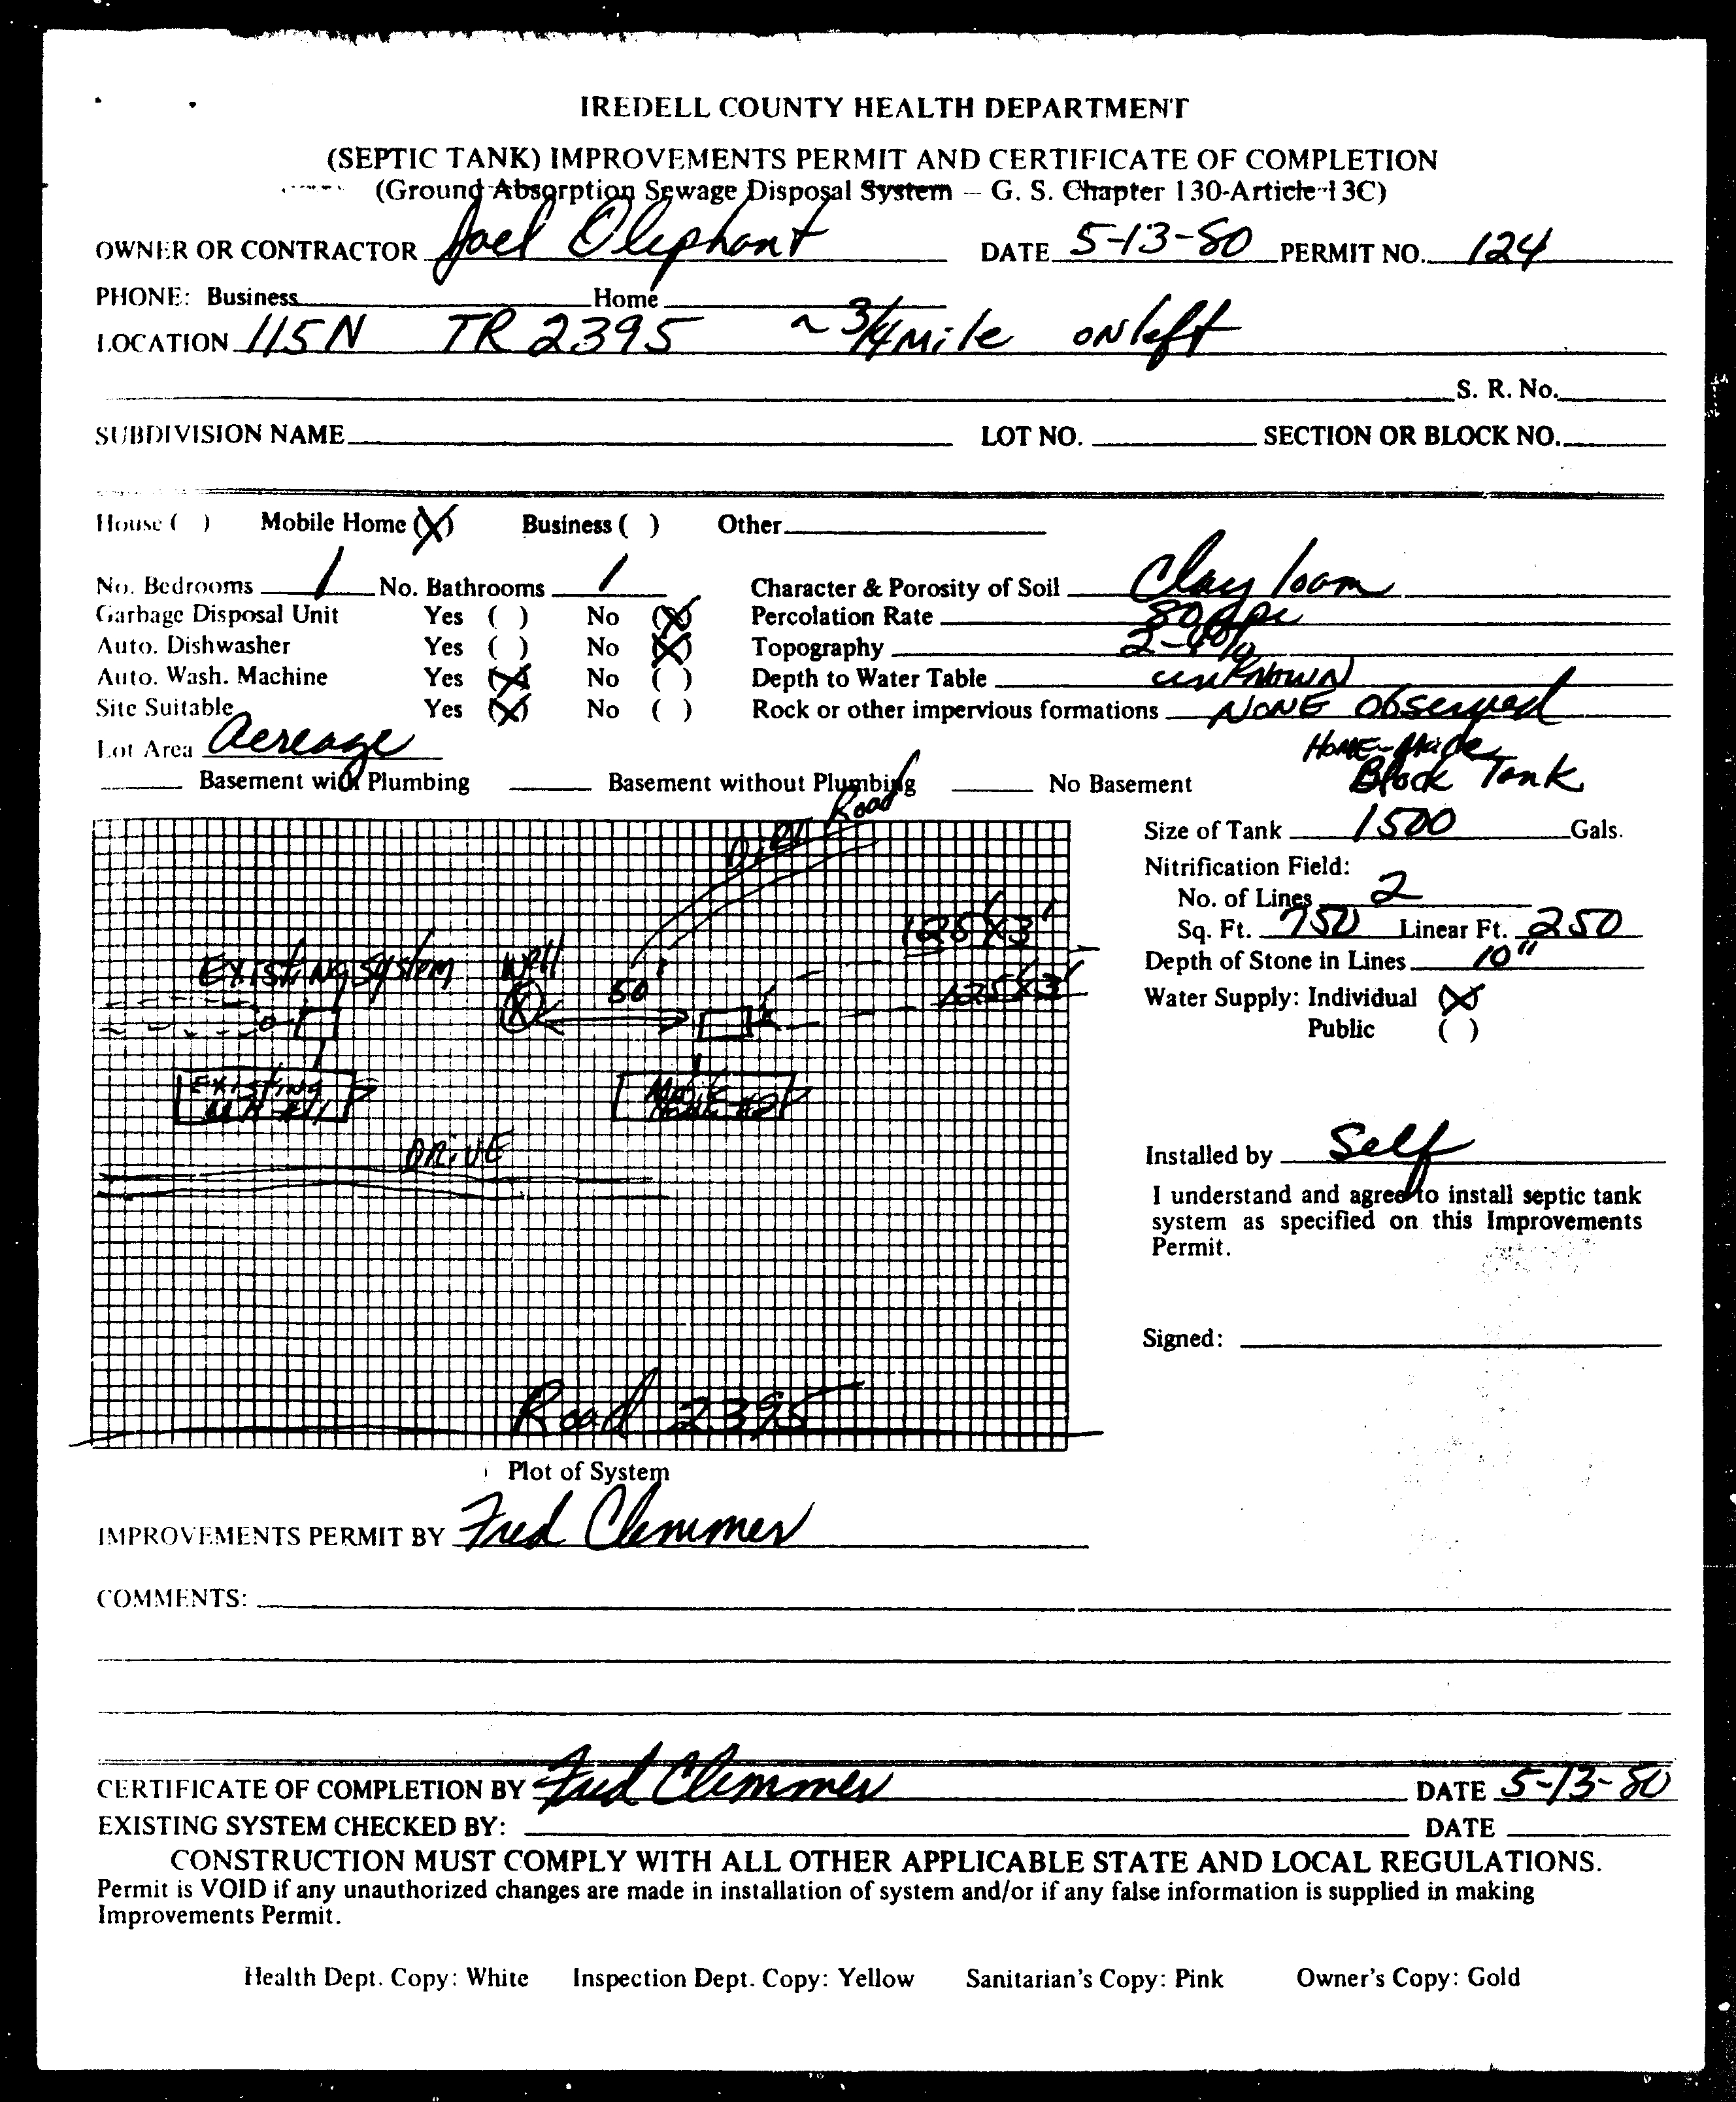 IREDELL COUNTY HEALTH DEPARTMENT
(SEPTIC TANK) IMPROVEMENTS PERMIT AND CERTIFICATE OF COMPLETION
(Ground Absorption Sewage Disposal System — G. S. Chapter 130-Article 13C)
OWNER OR CONTRACTOR Joel Olephant DATE 5-13-80 PERMIT NO. 124
PHONE: Business Home
LOCATION 115N TR 2395 ~ 3/4 Mile ON left
S. R. No.
SUBDIVISION NAME LOT NO. SECTION OR BLOCK NO.
House ( ) Mobile Home (X) Business ( ) Other
No. Bedrooms 1 No. Bathrooms 1 Character & Porosity of Soil Clay loam
Garbage Disposal Unit Yes ( ) No (X) Percolation Rate 80
Auto. Dishwasher Yes ( ) No (X) Topography 2-4%
Auto. Wash. Machine Yes (X) No ( ) Depth to Water Table unknown
Site Suitable Yes (X) No ( ) Rock or other impervious formations NONE Observed
Lot Area Acreage
HOME-Made
Block Tank
Basement with Plumbing Basement without Plumbing No Basement
Dirt Road
Size of Tank 1500 Gals.
Nitrification Field:
No. of Lines 2
Sq. Ft. 750 Linear Ft. 250
Depth of Stone in Lines 10"
Water Supply: Individual (X)
Public ( )
125'X3'
125'X3'
Existing System Well 50'
Existing
DRIVE
Installed by Self
I understand and agree to install septic tank
system as specified on this Improvements
Permit.
Signed:
Road 2395
Plot of System
IMPROVEMENTS PERMIT BY Fred Clemmer
COMMENTS:
CERTIFICATE OF COMPLETION BY Fred Clemmer DATE 5-13-80
EXISTING SYSTEM CHECKED BY: DATE
CONSTRUCTION MUST COMPLY WITH ALL OTHER APPLICABLE STATE AND LOCAL REGULATIONS.
Permit is VOID if any unauthorized changes are made in installation of system and/or if any false information is supplied in making
Improvements Permit.
Health Dept. Copy: White Inspection Dept. Copy: Yellow Sanitarian's Copy: Pink Owner's Copy: Gold